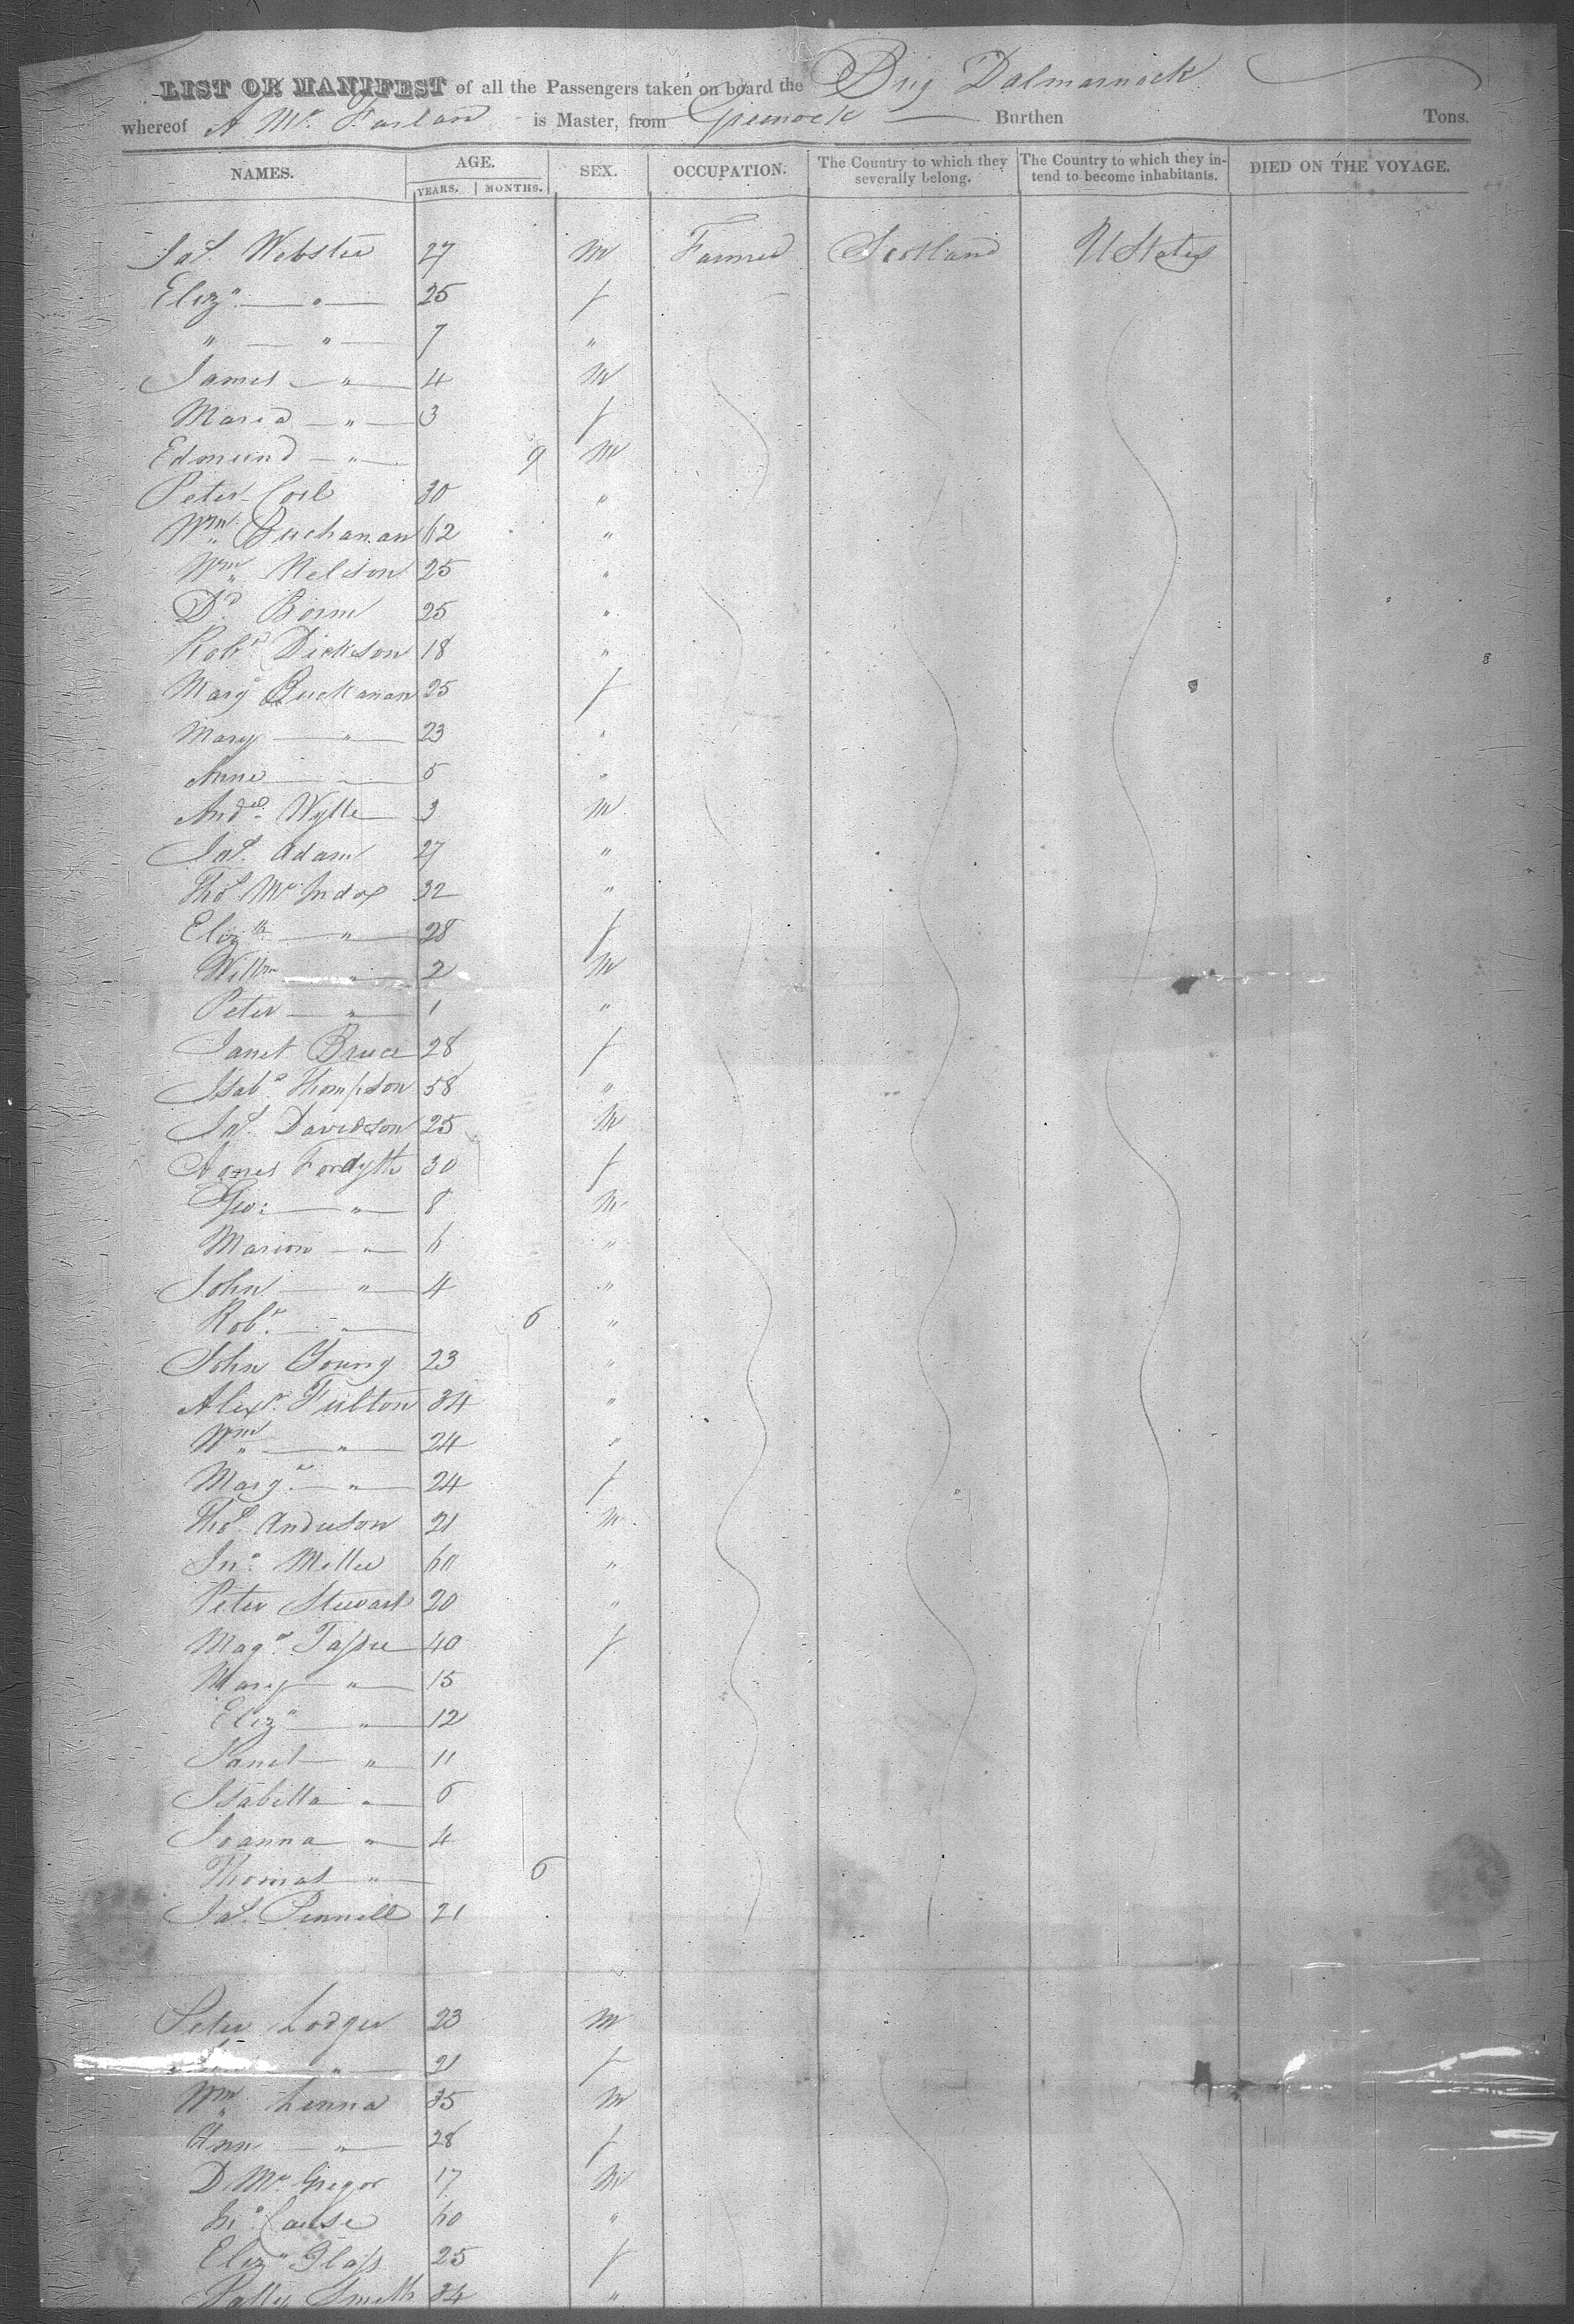 LIST OR MANIFEST of all the Passengers taken on board the Brig Dalmarnock
whereof A Mc Farlan is Master, from Greenock Burthen Tons.
NAMES. AGE. SEX. OCCUPATION. The Country to which they severally belong. The Country to which they intend to become inhabitants. DIED ON THE VOYAGE.
YEARS. MONTHS.
Jas. Webster 27 M Farmer Scotland U States
Eliza " 25 f
" " 7 "
James " 4 M
Maria " 3 f
Edmund " 9 M
Peter 30 "
Wm Buchanan 62 "
Wm Nelson 25 "
Dd 25 "
Robt Dickson 18 "
Margt Buckanan 25 f
Mary " 23 "
Anne 5 "
Andw Wylie 3 M
Jas. Adam 27 "
Thos Mc Indoe 32 "
Elizth " 28 f
Willm " 2 M
Peter " 1 "
Janet Bruce 28 f
Isaba Thompson 58 "
Jas. Davidson 25 M
Agnes Fordyth 30 f
Geo: " 8 M
Marion " 6 "
John " 4 "
Robt. " 6 "
John Young 23 "
Alexr. Fulton 34 "
Wm " 24 "
Margt " 24 f
Thos Anderson 21 M
Jno Miller 60 "
Peter Stewart 20 "
Magt 40 f
Mary " 15
Eliza " 12
Janet " 11
Isabella " 6
Joanna " 4
Thomas " 6
Jas. Pennell 21
Peter Lodger 23 M
" 21 f
Wm Lenna 35 M
Ann " 28 f
D. Mc Gregor 17 M
Jno 60 "
Eliza Glass 25 f
Smith 34 "